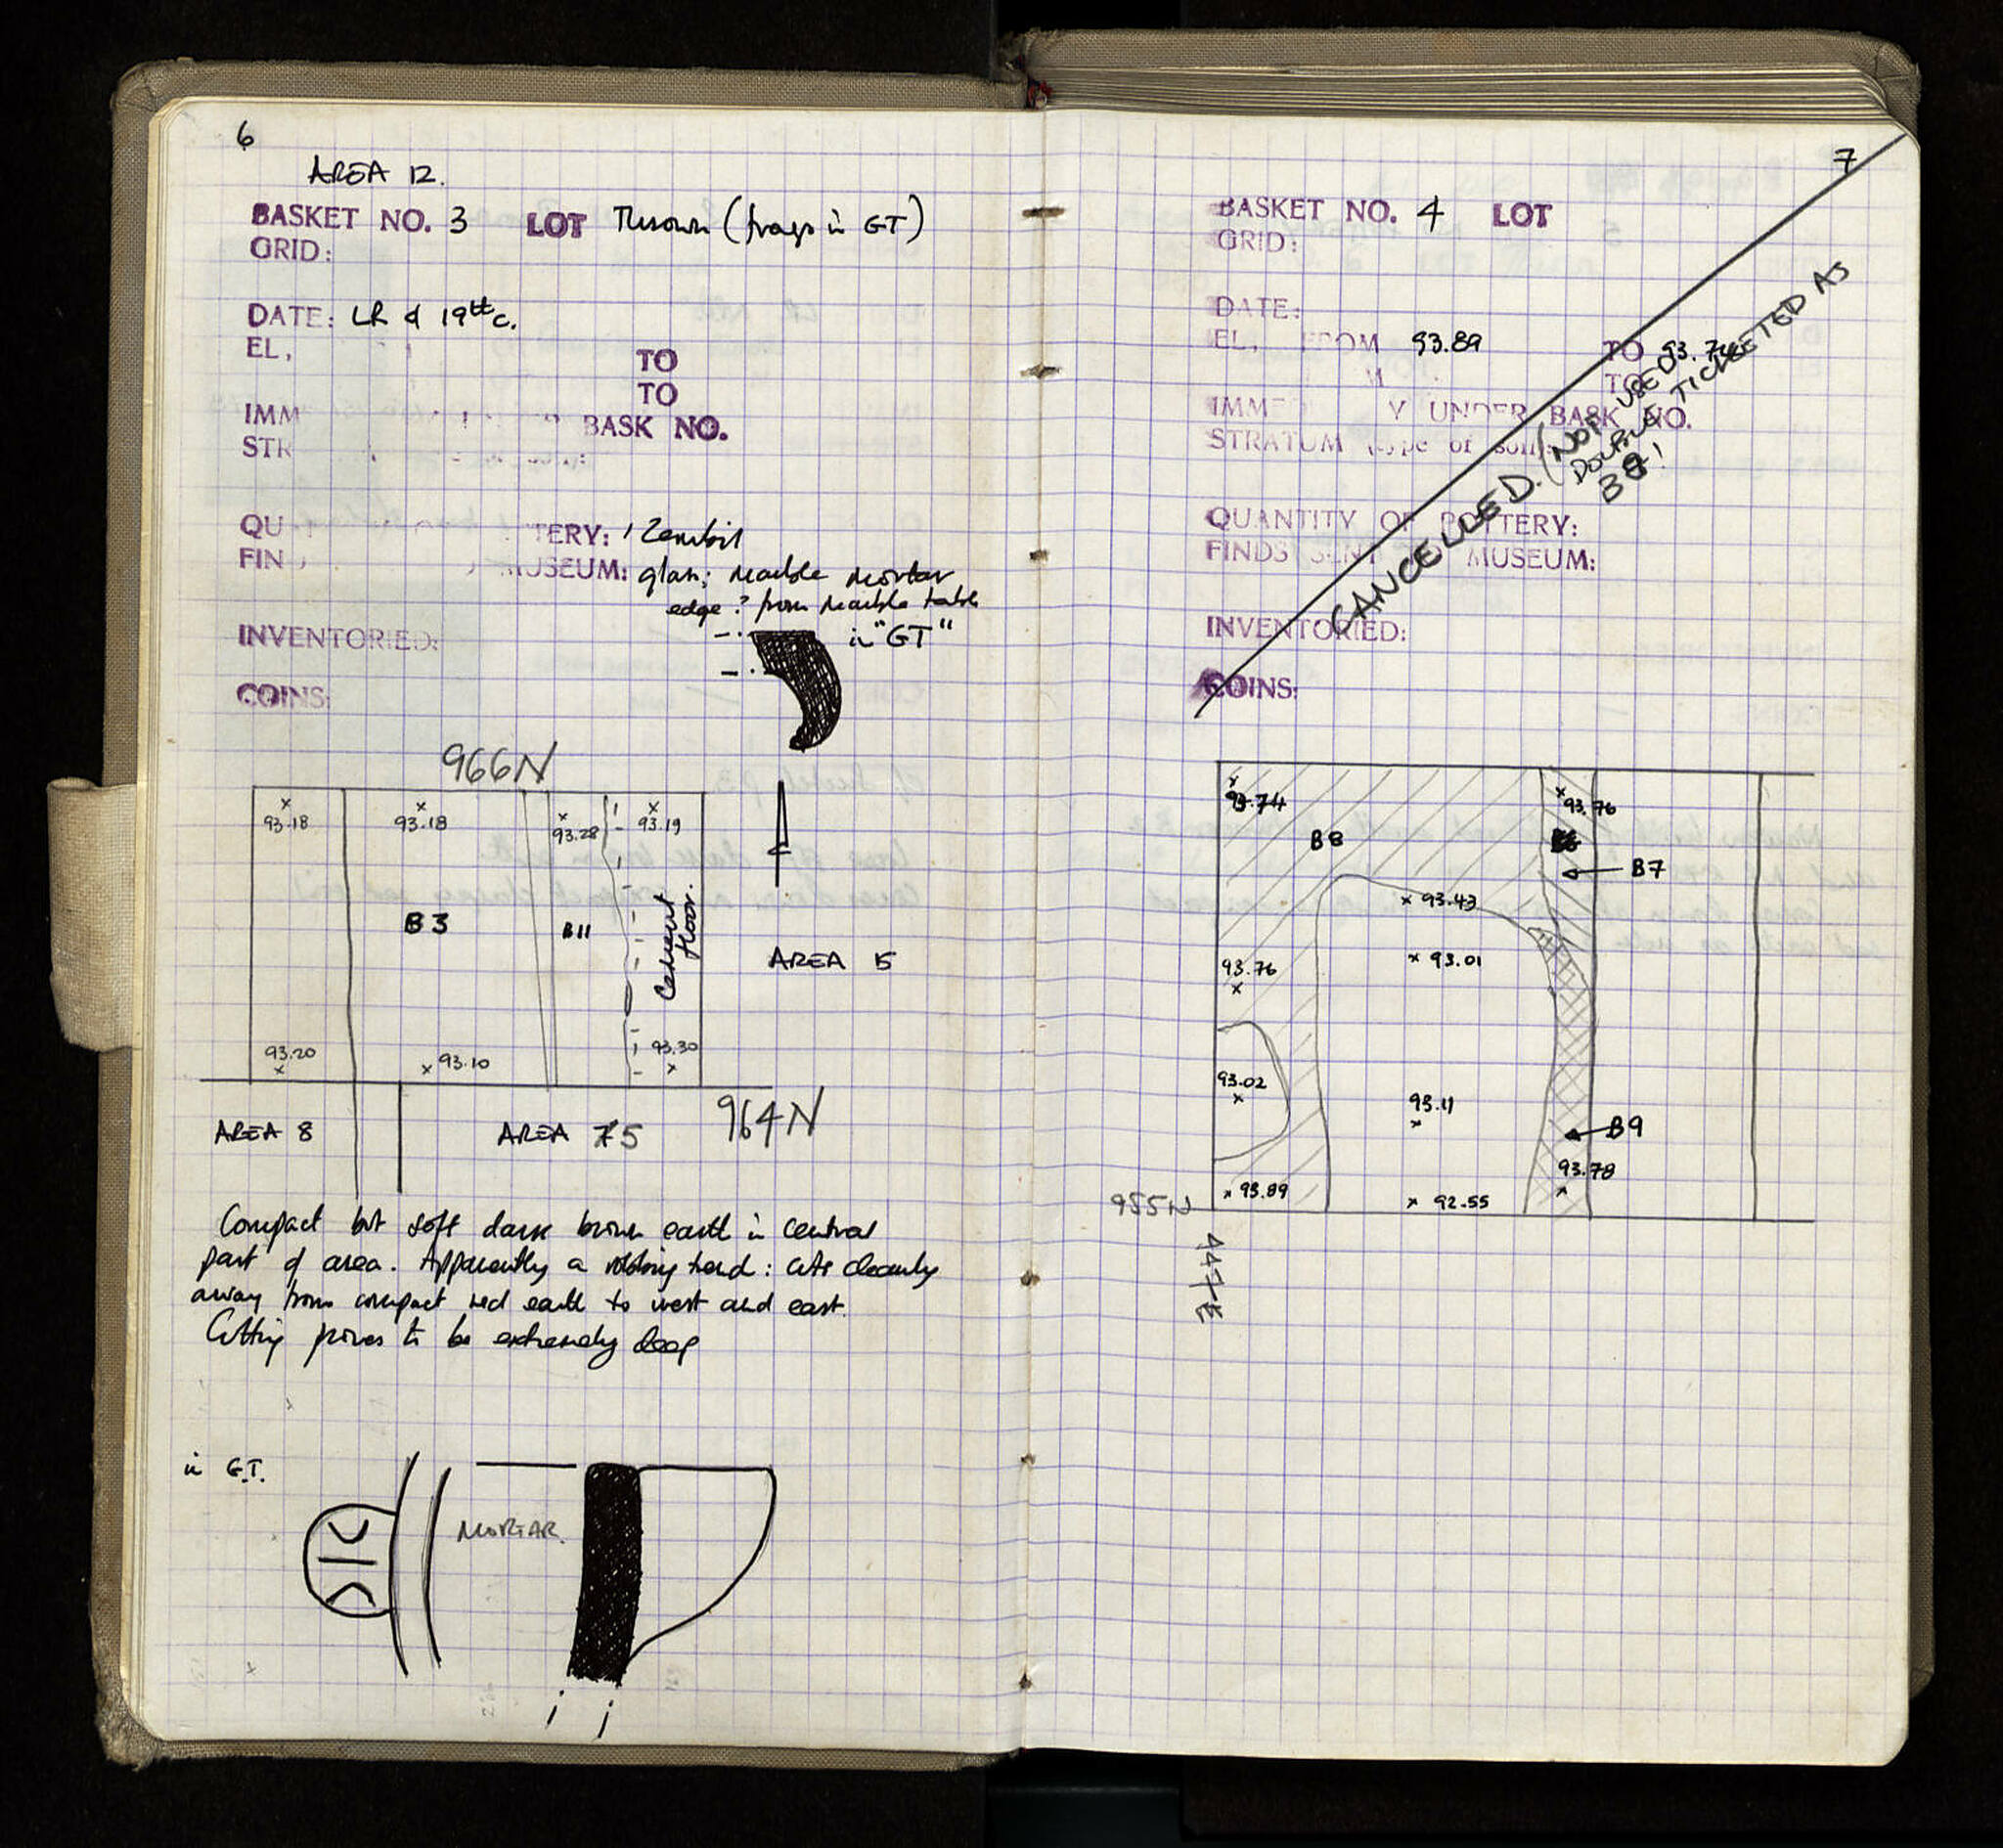 6
AREA 12.
BASKET NO. 3 LOT Thrown (frags in GT)
GRID:
DATE: LR & 19th c.
EL,
TO
TO
IMM BASK NO.
STR
QU TERY: 1 Zembil
FIN MUSEUM: glass; marble mortar
edge ? from marble table
INVENTORIED: in "GT"
COINS:
966N
93.18 93.18 93.28 93.19
B3 B11 Cement floor.
AREA 15
93.20 93.10 93.30
964N
AREA 8 AREA 75
Compact but soft dark brown earth in central
part of area. Apparently a robbing trench: cuts cleanly
away from compact red earth to west and east.
Cutting proves to be extremely deep
in G.T.
MORTAR.
7
BASKET NO. 4 LOT
GRID:
DATE:
EL, FROM 93.89 TO 93.74
M TO
IMMED Y UNDER BASK NO.
STRATUM (type of soil):
QUANTITY OF POTTERY:
FINDS SENT MUSEUM:
INVENTORIED:
COINS:
CANCELLED. (NOT USED)
DOUBLE TICKETED AS
B8!
93.74 93.76
B8
B7
93.43
93.01
93.76
93.02
93.11
B9
93.78
93.89 92.55
955N
447E